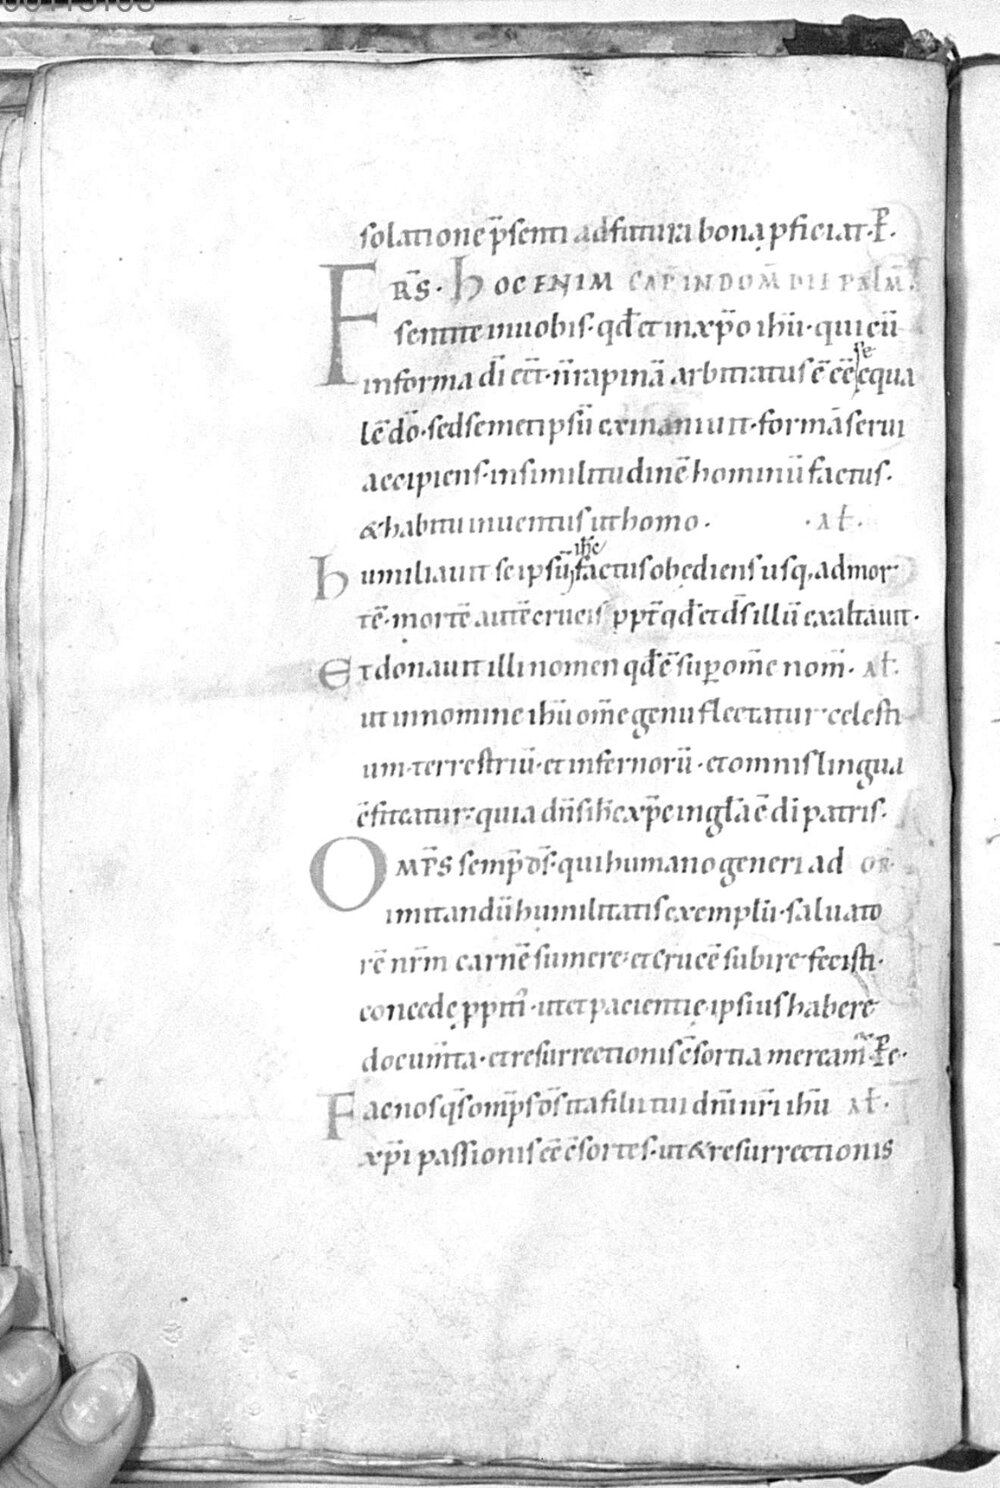 solatione p̄senti ad futura bona ꝑficiat. P̄.
FR̄S. HOC ENIM CAP̄. IN DOM̄ DII PALM̄.
sentite in uobis. qđ et in xp̄o ihū. qui cū
in forma dī eēt. n̄ rapinā arbitratus ē eē se equa
lē dō. sed semetipsū exinaniuit. formā serui
accipiens. in similitudinē hominū factus.
& habitu inuentus ut homo. . aƚ.
humiliauit se ipsū ihc factus obędiens usq, ad mor
tē. mortē autē crucis ꝓpt̄ qđ et d̄s illū exaltauit.
Et donauit illi nomen qđ ē suꝑ om̄e nom̄. aƚ.
ut in nomine ihū om̄e genu flectatur celesti
um. terrestriū. et infernorū. et omnis lingua
c̄fiteatur. quia dn̄s ih̄c xp̄c in gƚa ē dī patris.
OMP̄S semp̄ d̄s. qui humano generi ad OR.
imitandū humilitatis exemplū. saluato
rē nr̄m carnē sumere. et crucē subire fecisti.
concede ꝓpiti᷒. ut et pacientię ipsius habere
docum̄ta. et resurrectionis c̄sortia mereamur. P̄ e.
Fac nos qs̄ om̄ps d̄s ita filii tui dn̄i nr̄i ihū aƚ.
xp̄i passionis eē c̄sortes. ut & resurrectionis